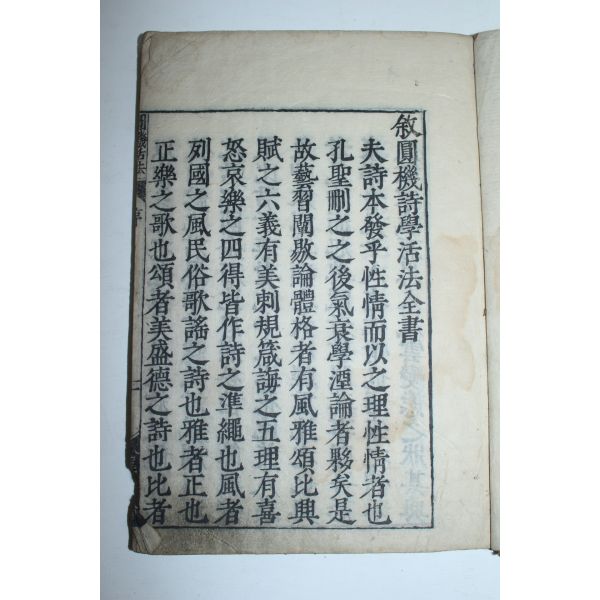 敘圓機詩學活法全書
夫詩本發乎性情而以之理性情者也
孔聖刪之之後氣衰學湮論者夥矣是
故藝習闡敭論體格者有風雅頌比興
賦之六義有美刺規箴誨之五理有喜
怒哀樂之四得皆作詩之準繩也風者
列國之風民俗歌謠之詩也雅者正也
正樂之歌也頌者美盛德之詩也比者